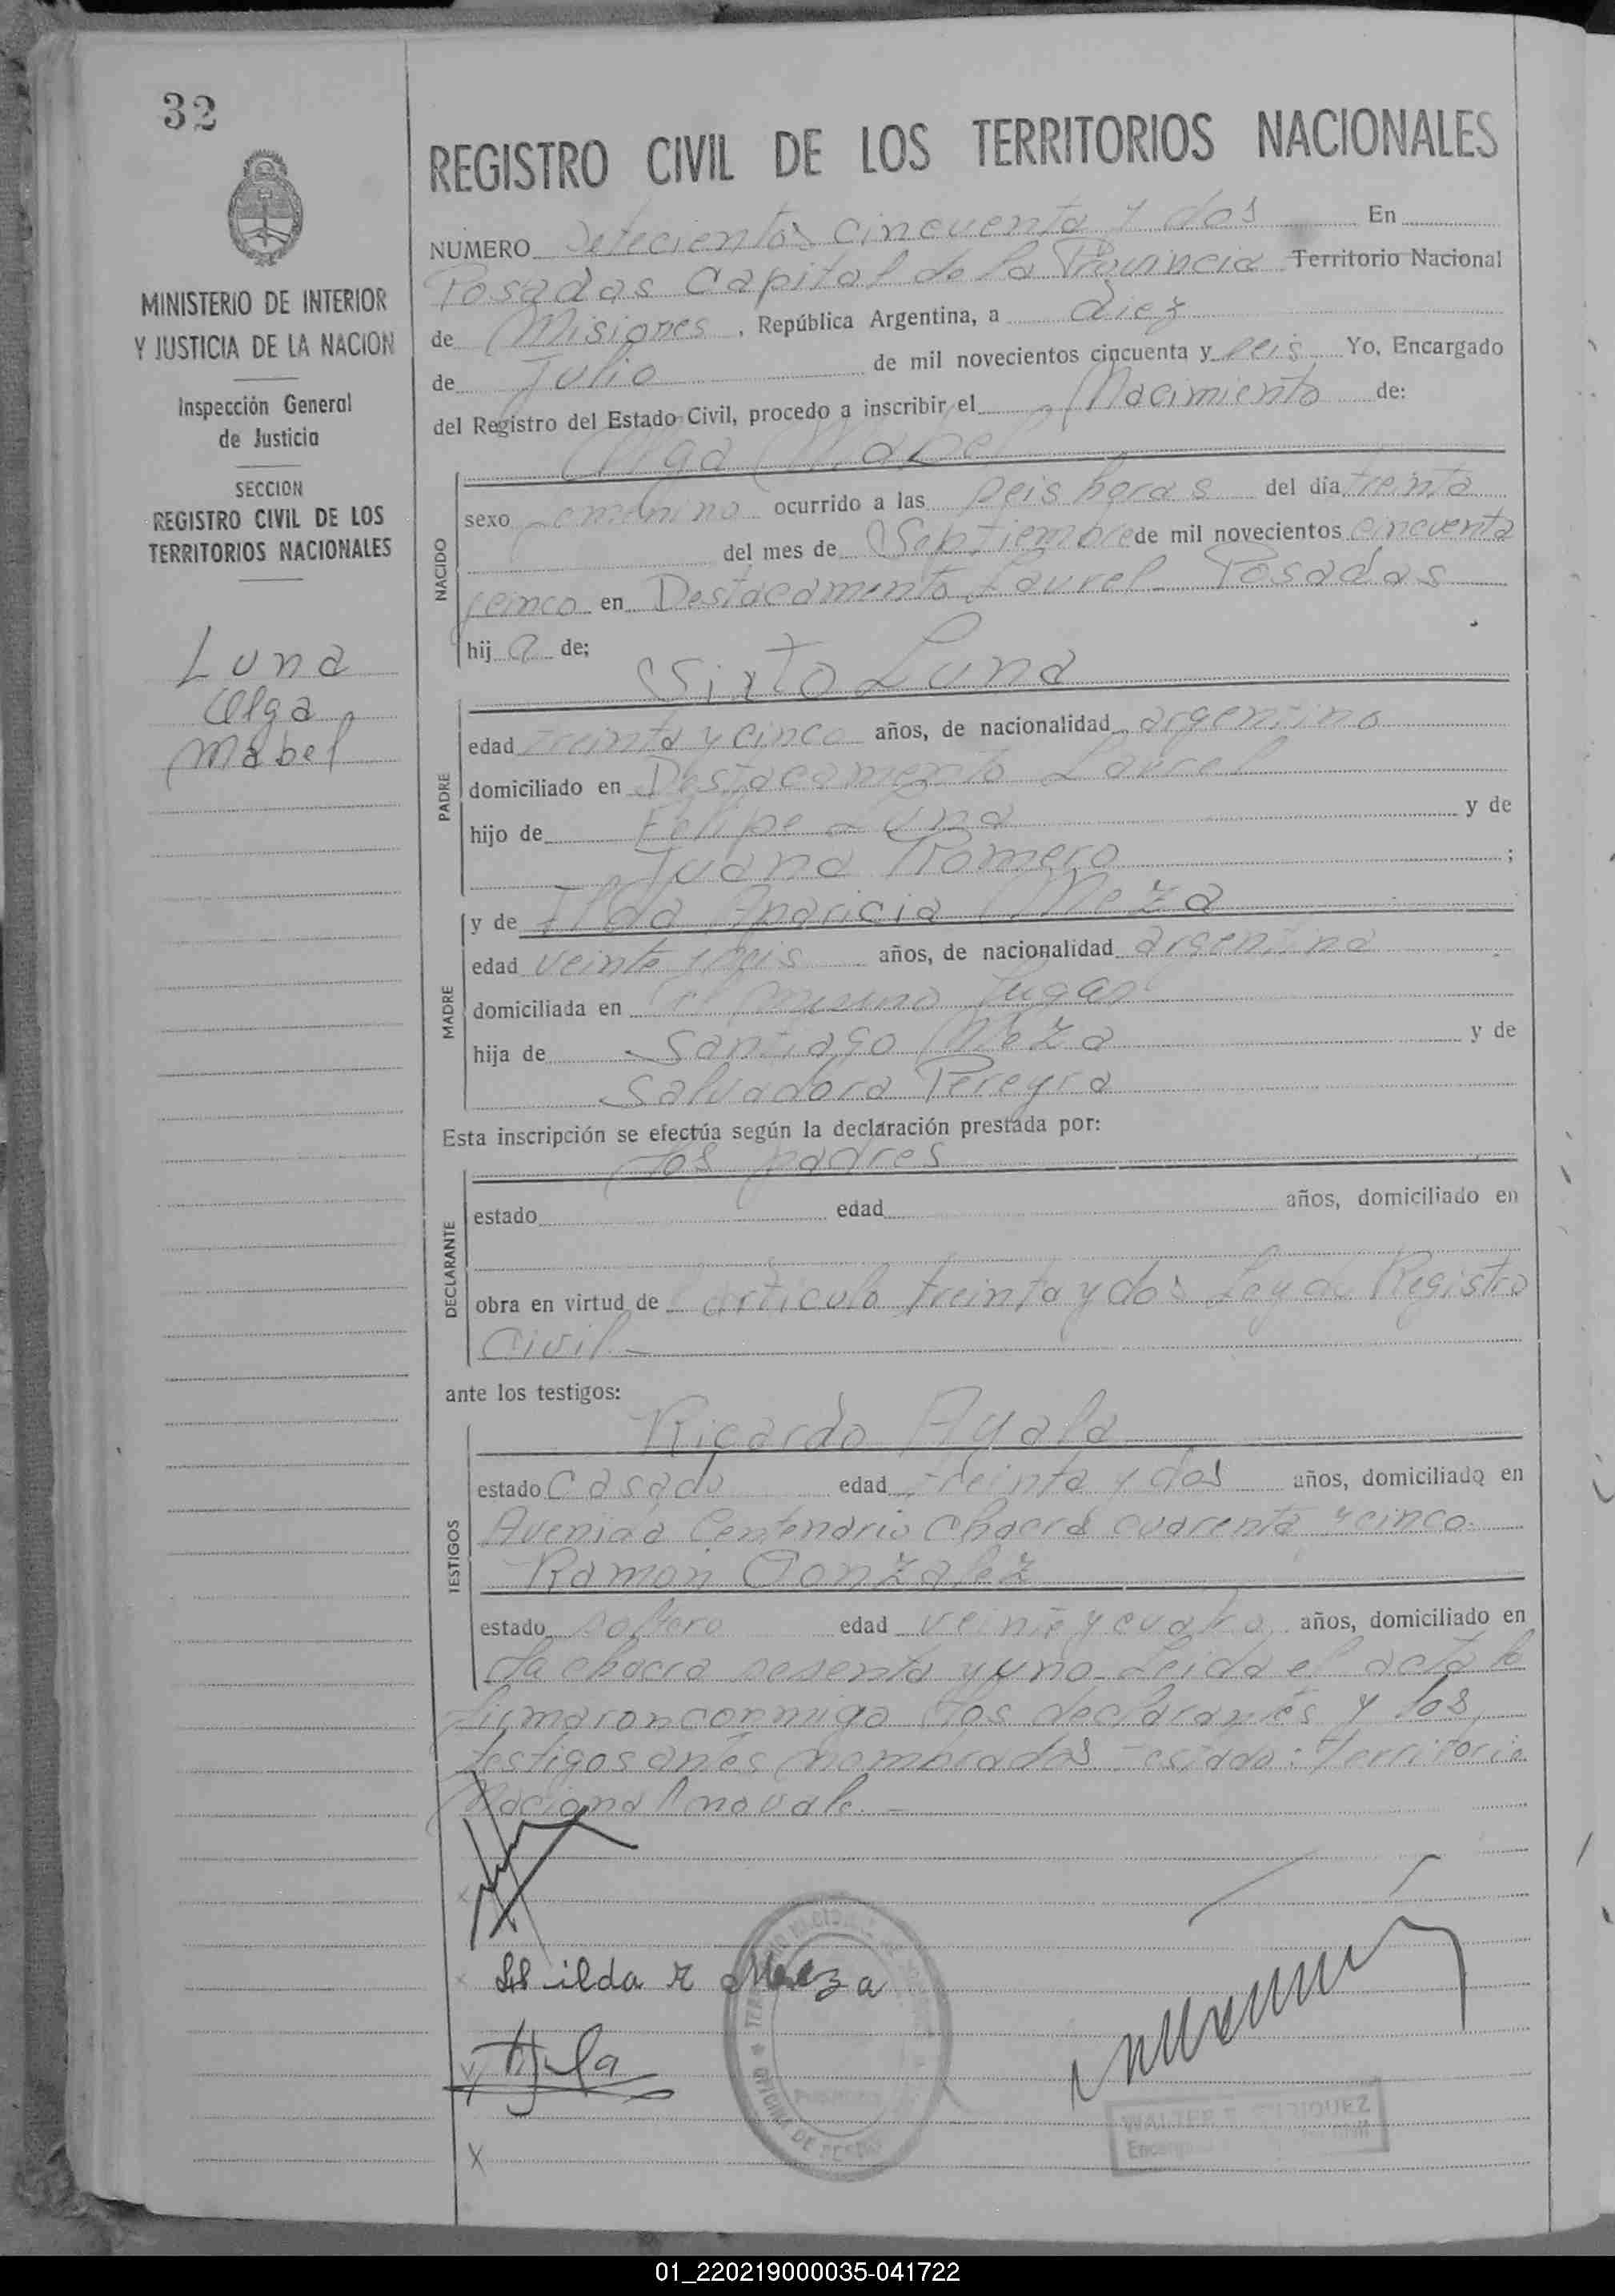 32
MINISTERIO DE INTERIOR
Y JUSTICIA DE LA NACION
Inspección General
de Justicia
SECCION
REGISTRO CIVIL DE LOS
TERRITORIOS NACIONALES
Luna
Olga
Mabel
REGISTRO CIVIL DE LOS TERRITORIOS NACIONALES
NUMERO Setecientos cincuenta y dos En
Posadas Capital de la Provincia Territorio Nacional
de Misiones, República Argentina, a diez
de Julio de mil novecientos cincuenta y seis Yo, Encargado
del Registro del Estado Civil, procedo a inscribir el Nacimiento de:
Olga Mabel
NACIDO
sexo femenino ocurrido a las seis horas del día treinta
del mes de Septiembre de mil novecientos cincuenta
cinco en Destacamento Laurel Posadas
hija de;
Sixto Luna
PADRE
edad treinta y cinco años, de nacionalidad argentino
domiciliado en Destacamento Laurel
hijo de Felipe Luna y de
Juana Romero ;
MADRE
y de Ilda Aparicia Meza
edad veinte y seis años, de nacionalidad argentina
domiciliada en el mismo lugar
hija de Santiago Meza y de
Salvadora Pereyra
Esta inscripción se efectúa según la declaración prestada por:
los padres
DECLARANTE
estado edad años, domiciliado en
obra en virtud de artículo treinta y dos Ley de Registro
Civil.-
ante los testigos:
TESTIGOS
Ricardo Ayala
estado casado edad treinta y dos años, domiciliado en
Avenida Centenario chacra cuarenta y cinco.
Ramon Gonzalez
estado soltero edad veinte y cuatro años, domiciliado en
la chacra sesenta y uno. Leida el acta la
firmaron conmigo los declarantes y los
testigos antes nombrados Testado: Territorio
Nacional no vale.-
Hilda Meza
OFICINA DE
WALTER
01_220219000035-041722